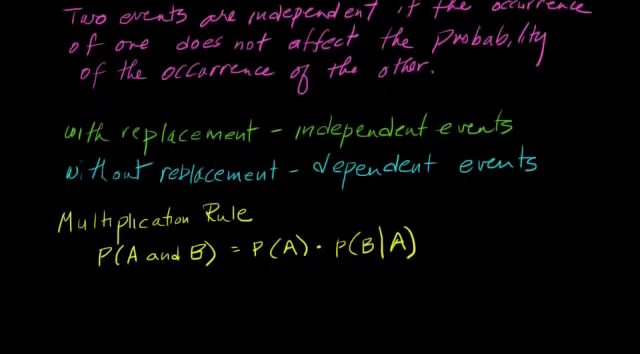 Two events are independent if the occurrence
of one does not affect the probability
of the occurrence of the other.
with replacement - independent events
without replacement - dependent events
Multiplication Rule
P(A and B) = P(A) · P(B|A)